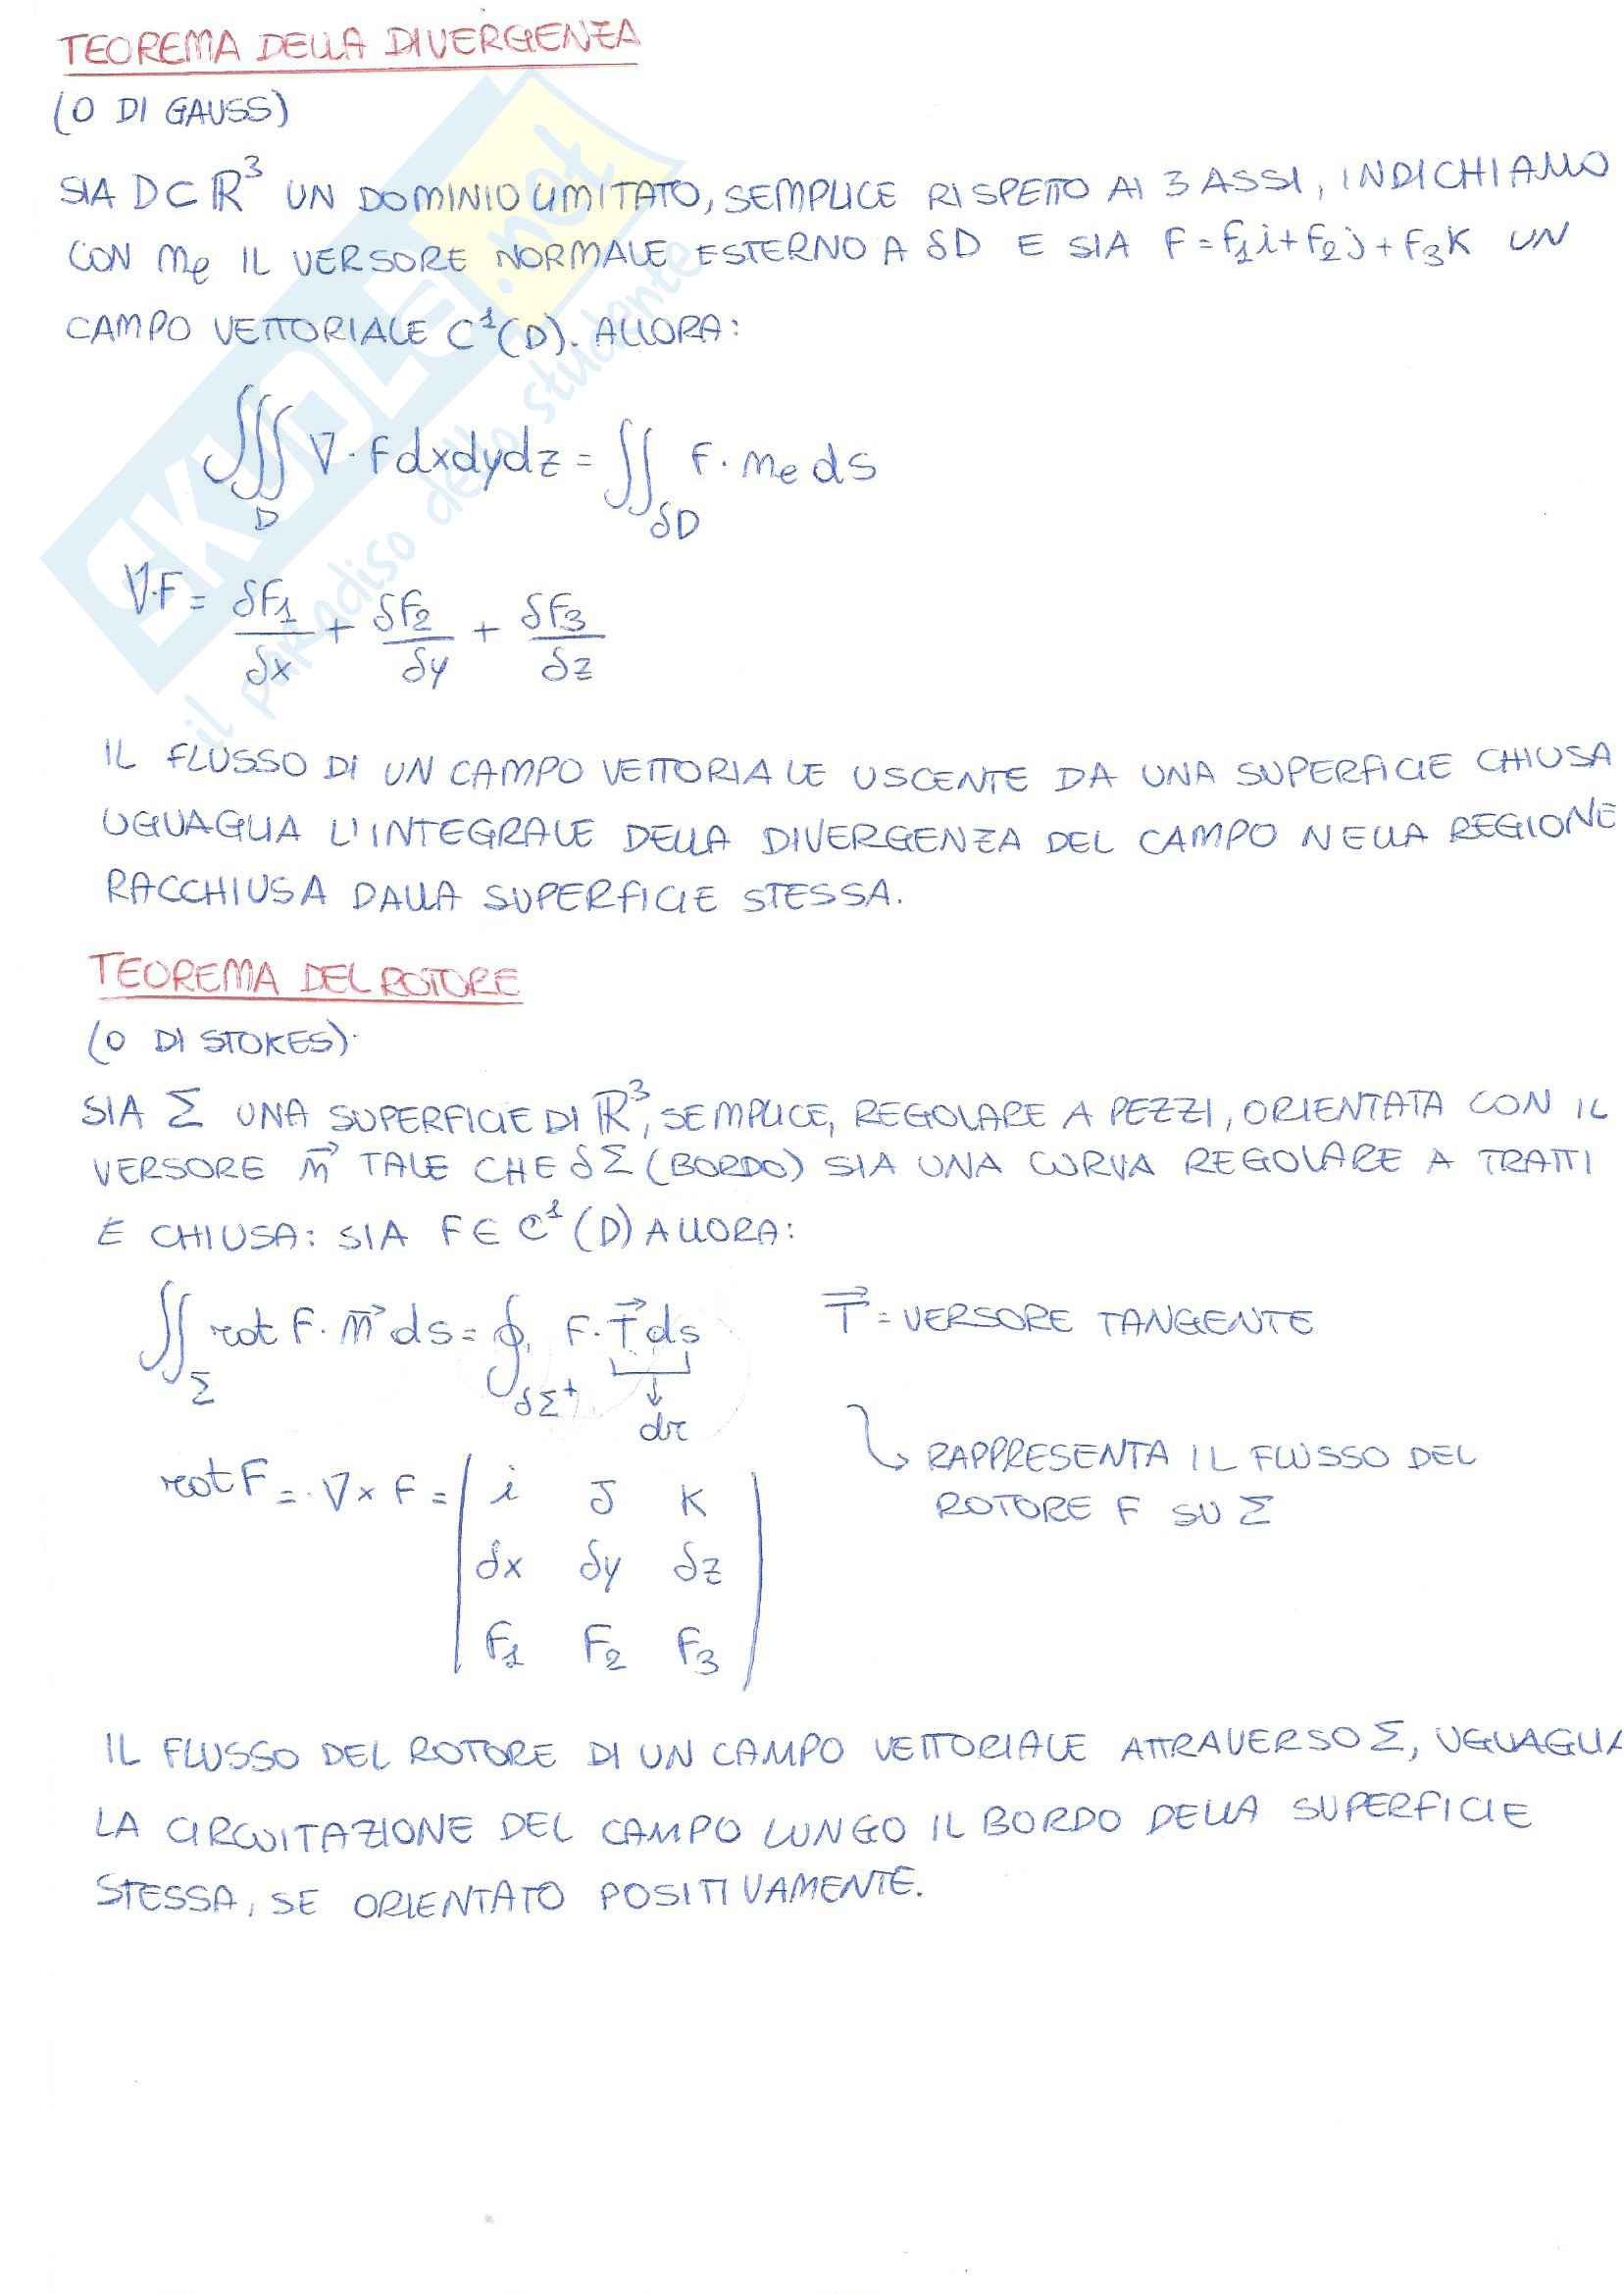 TEOREMA DELLA DIVERGENZA
(O DI GAUSS)
SIA D⊂ℝ³ UN DOMINIO LIMITATO, SEMPLICE RISPETTO AI 3 ASSI, INDICHIAMO
CON ne IL VERSORE NORMALE ESTERNO A δD E SIA F=F₁i+F₂j+F₃K UN
CAMPO VETTORIALE C¹(D). ALLORA:
∭_D ∇·F dxdydz = ∬_δD F·ne dS
∇·F = δF₁/δx + δF₂/δy + δF₃/δz
IL FLUSSO DI UN CAMPO VETTORIALE USCENTE DA UNA SUPERFICIE CHIUSA
UGUAGLIA L'INTEGRALE DELLA DIVERGENZA DEL CAMPO NELLA REGIONE
RACCHIUSA DALLA SUPERFICIE STESSA.
TEOREMA DEL ROTORE
(O DI STOKES).
SIA Σ UNA SUPERFICIE DI ℝ³, SEMPLICE, REGOLARE A PEZZI, ORIENTATA CON IL
VERSORE n⃗ TALE CHE δΣ (BORDO) SIA UNA CURVA REGOLARE A TRATTI
E CHIUSA: SIA F∈C¹(D) ALLORA:
∬_Σ rot F·n⃗ ds = ∮_δΣ⁺ F·T⃗ds T⃗ = VERSORE TANGENTE
↓
dr
↳ RAPPRESENTA IL FLUSSO DEL
ROTORE F SU Σ
rot F = ∇×F = | i J K |
| δx δy δz |
| F₁ F₂ F₃ |
IL FLUSSO DEL ROTORE DI UN CAMPO VETTORIALE ATTRAVERSO Σ, UGUAGLIA
LA CIRCUITAZIONE DEL CAMPO LUNGO IL BORDO DELLA SUPERFICIE
STESSA, SE ORIENTATO POSITIVAMENTE.
SKUOLA.net
il paradiso dello studente